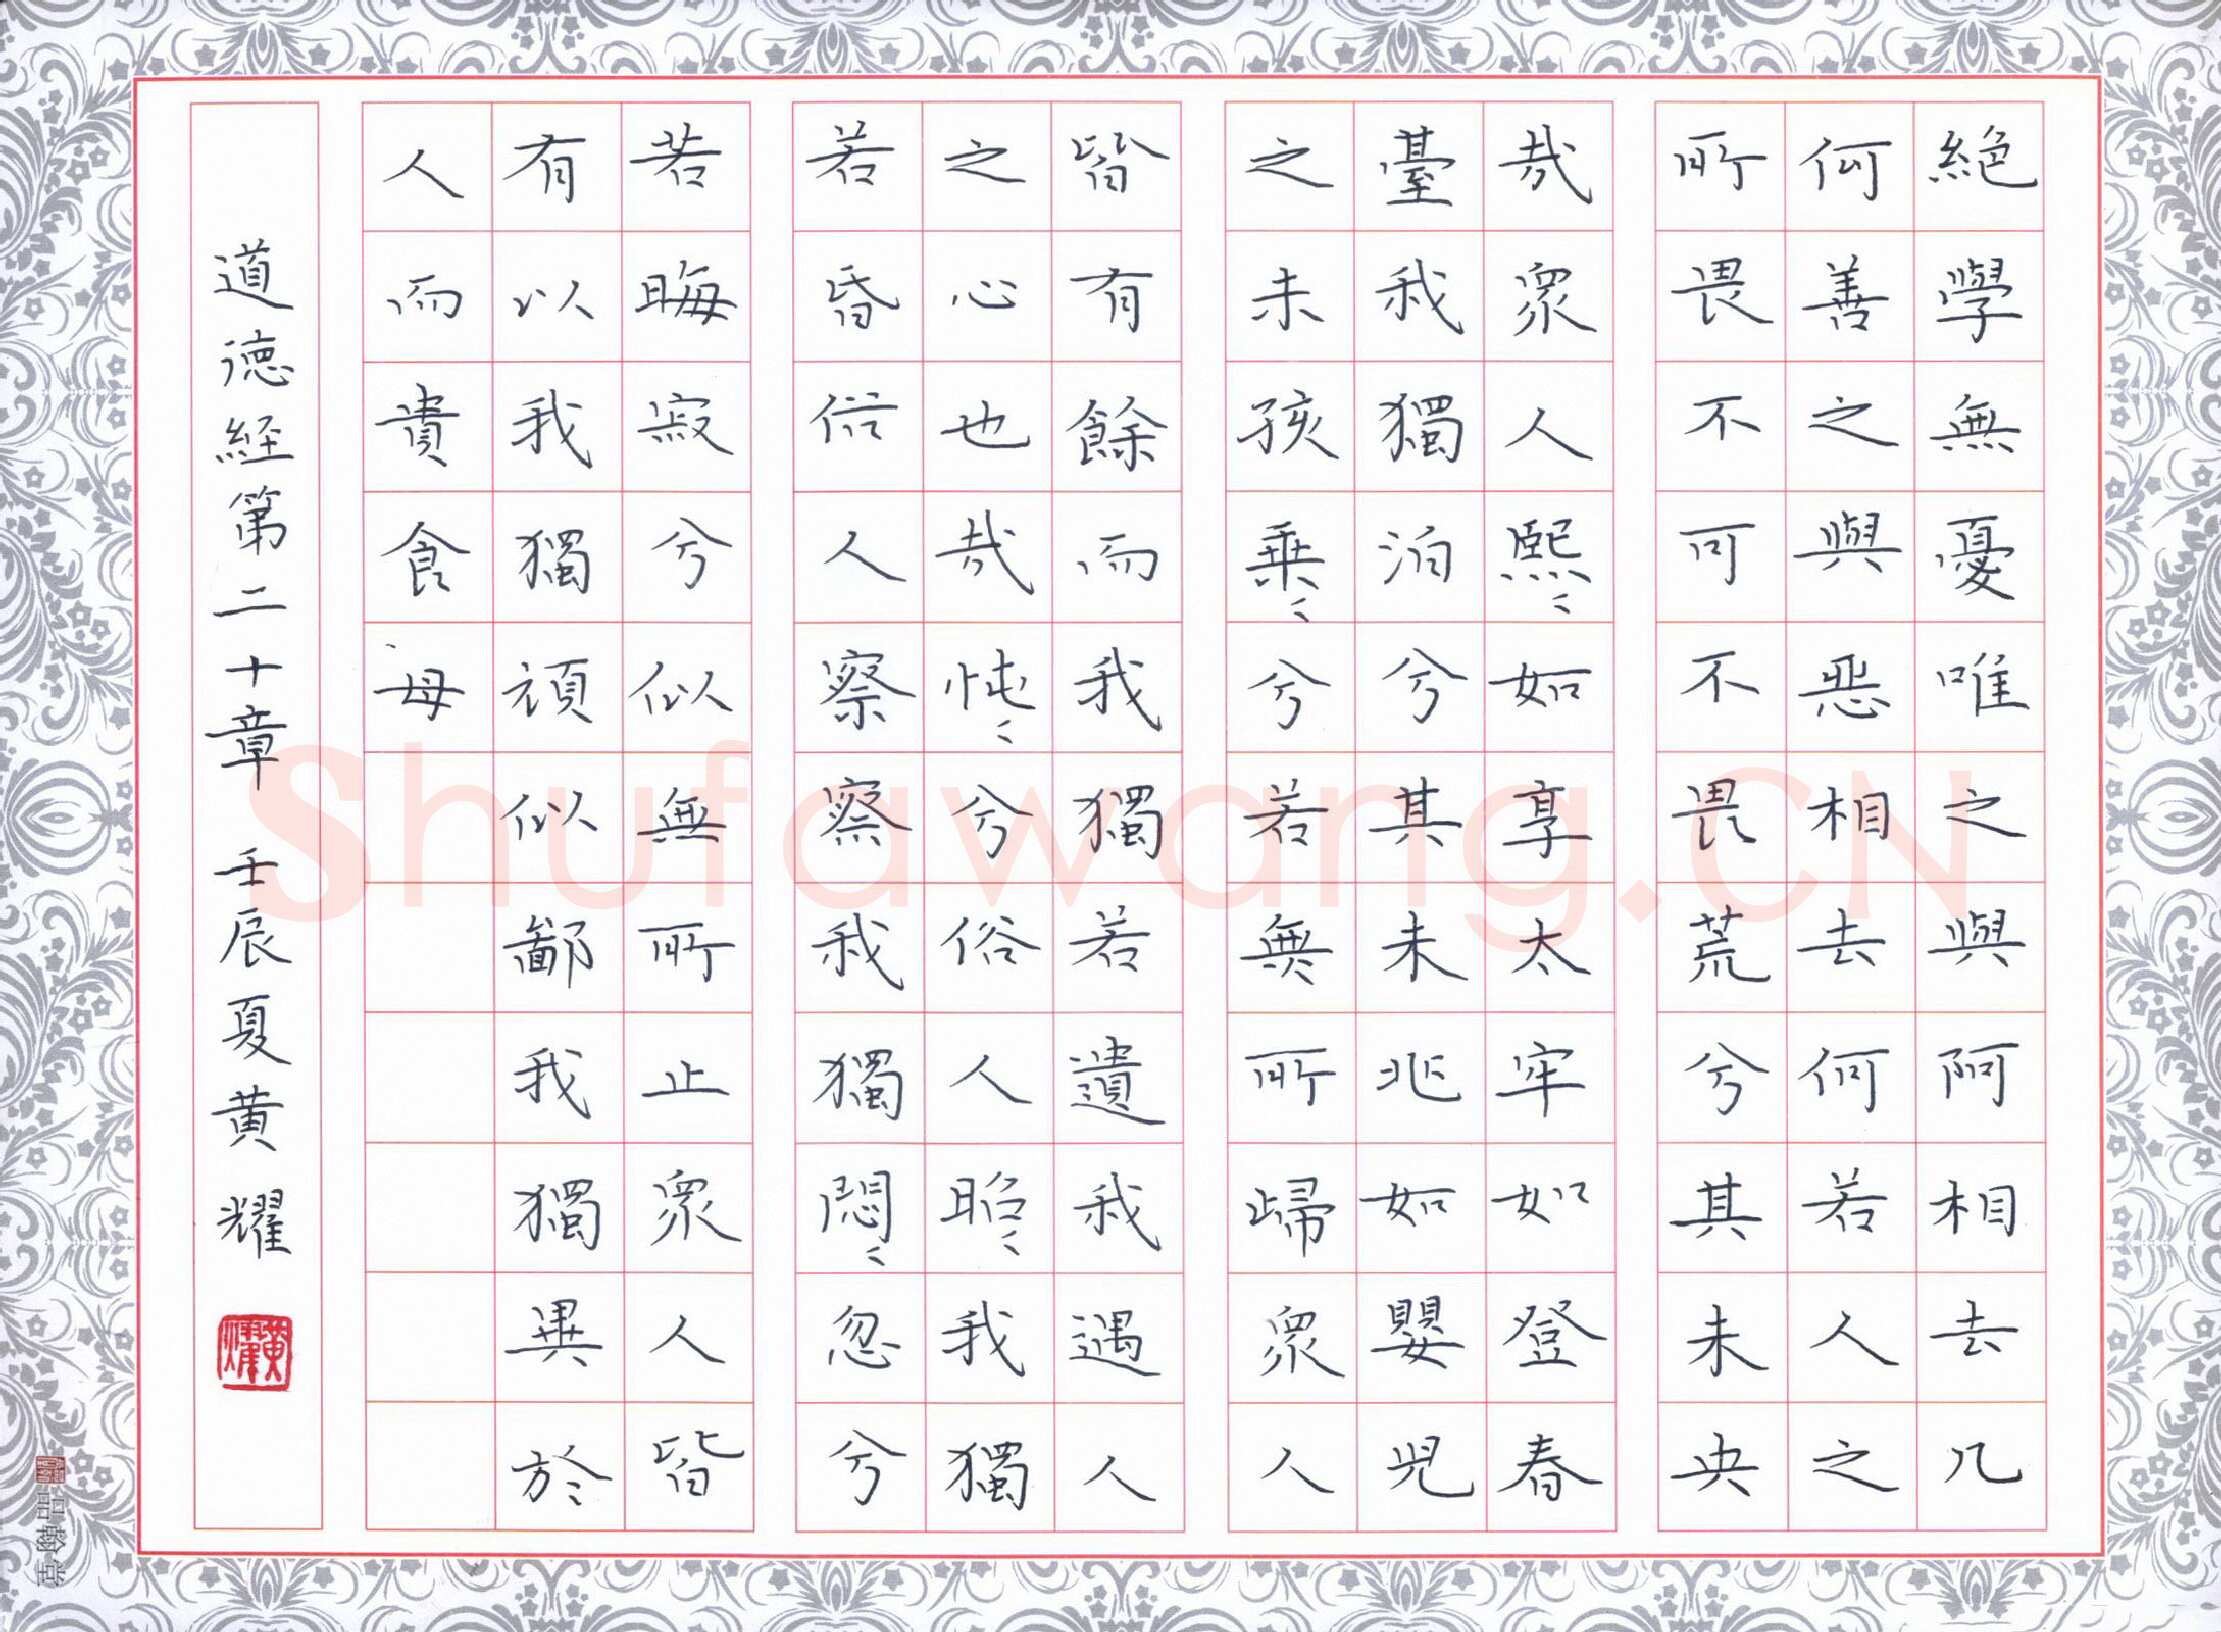 絕學無憂唯之與阿相去几
何善之與惡相去何若人之
所畏不可不畏荒兮其未央
哉眾人熙〻如享太牢如登春
臺我獨泊兮其未兆如嬰兒
之未孩乘〻兮若無所歸眾人
皆有餘而我獨若遺我遇人
之心也哉忳〻兮俗人昭〻我獨
若昏俗人察察我獨悶〻忽兮
若晦寂兮似無所止眾人皆
有以我獨頑似鄙我獨異於
人而貴食母
道德經第二十章 壬辰夏黃耀
品翰堂
Shufawang.CN